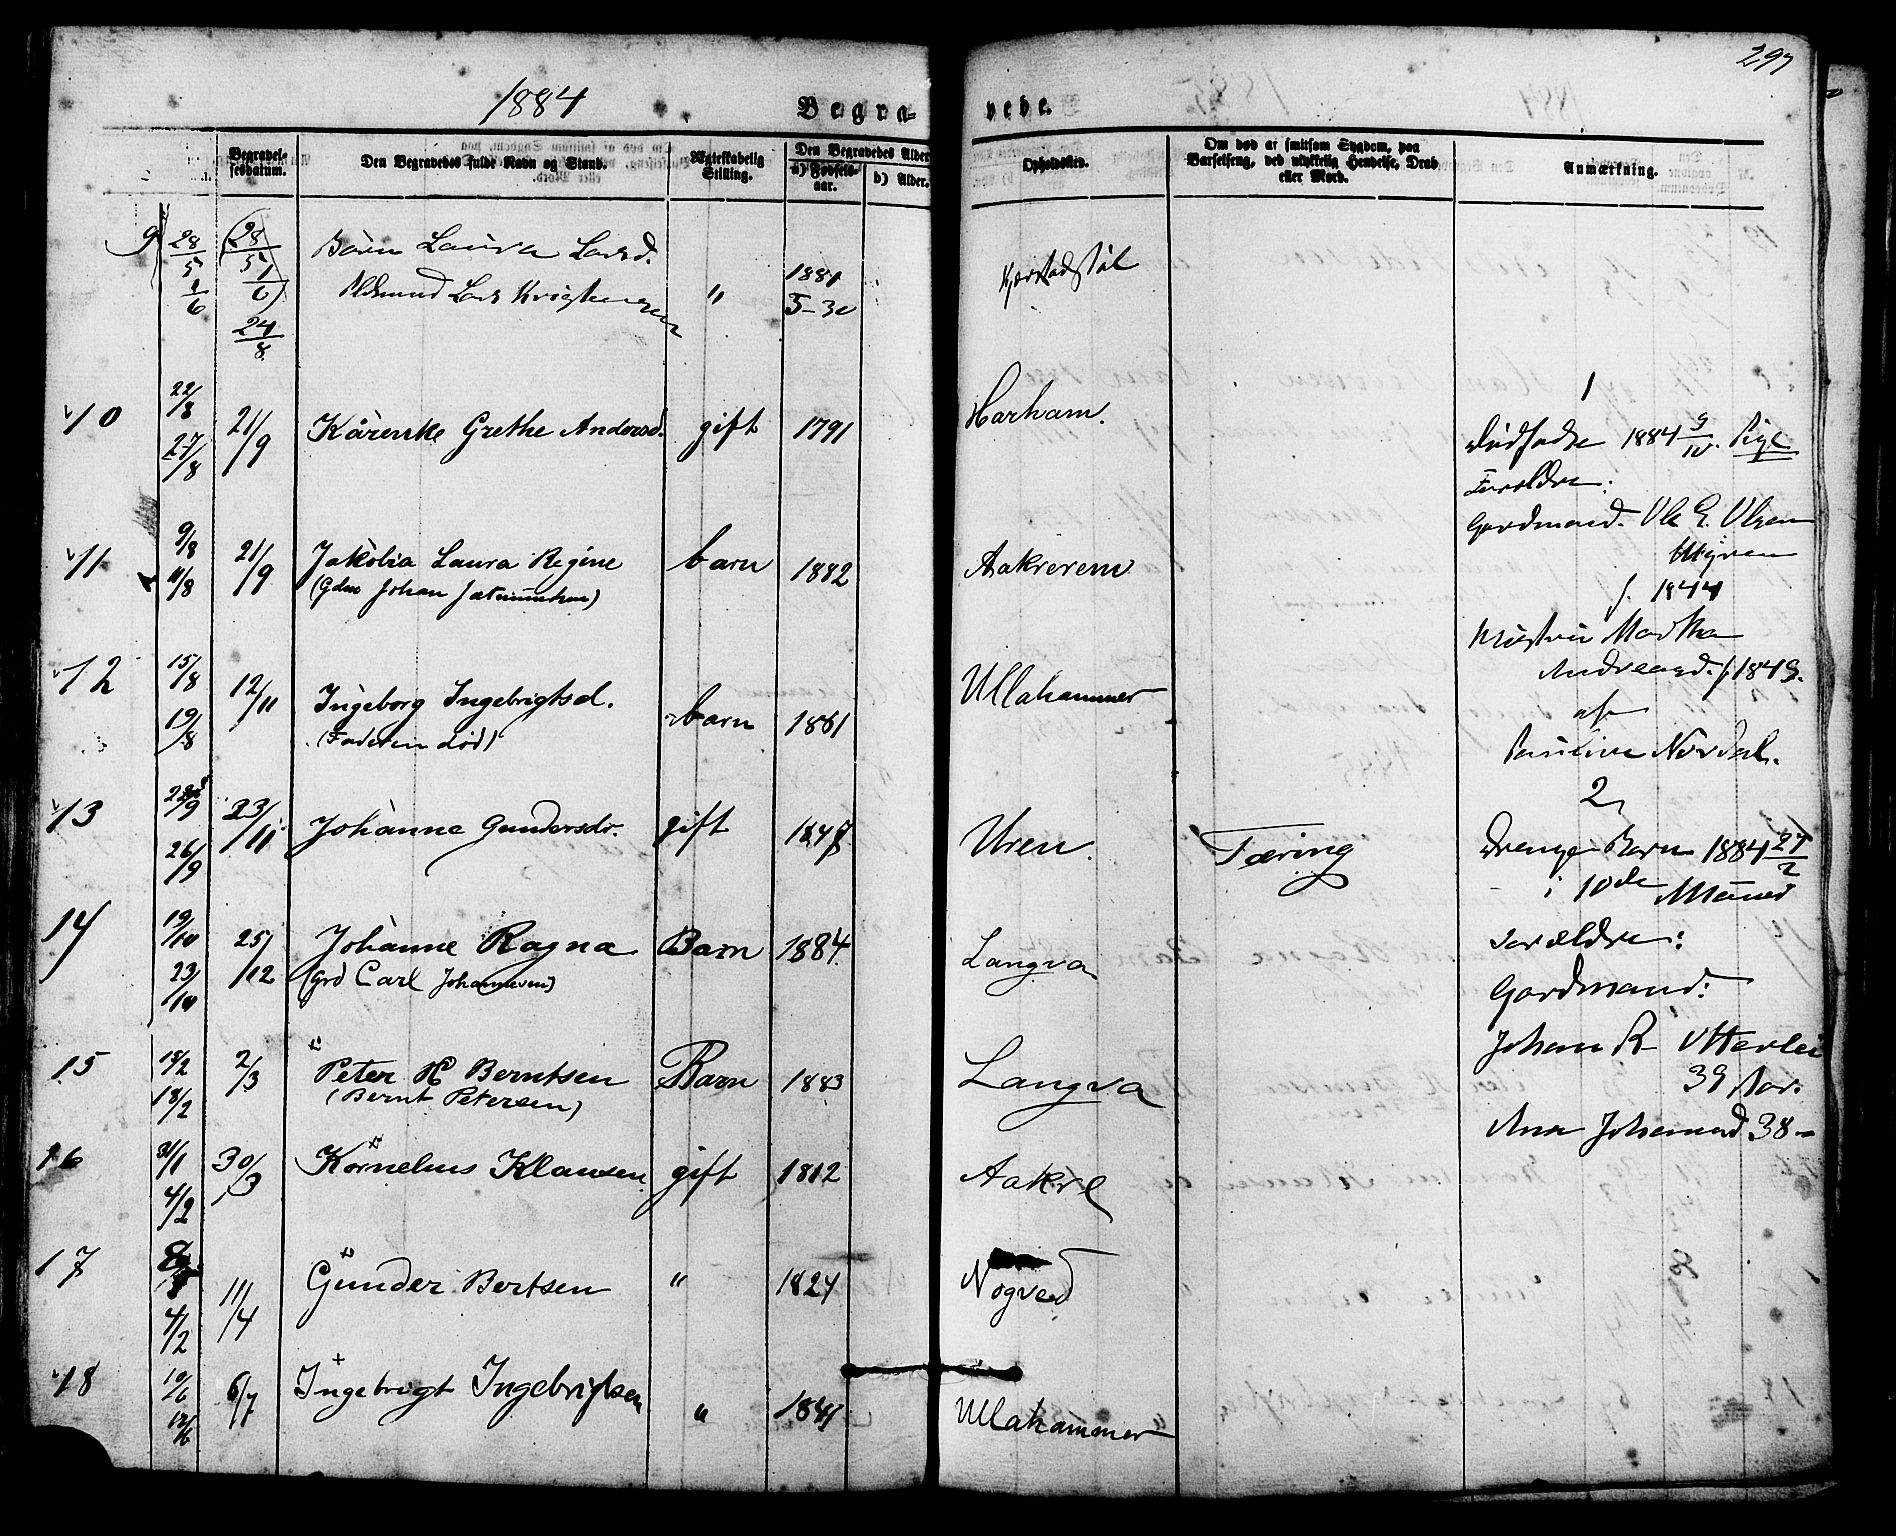 297
1884
Begra-
vede.
Begravel-
sesdatum.
Den Begravedes fulde Navn og Stand.
Ægteskabelig
Stilling.
Den Begravedes Alder
a) Fødsels-
aar.
b) Alder.
Opholdssted.
Om død af smitsom Sygdom, paa
Barselseng, ved ulykkelig Hendelse, Drab
eller Mord.
Anmærkning.
9 28/5 1/6 28/5 1/6 24/8 Barn Laura Larsd. " 1881
5-30
10 22/8 27/8 21/9 Karenke Grethe Andersd. gift 1791 Harham.
11 9/8 11/8 21/9 Jakobia Laura Regine barn 1882 Aakrerem
12 15/8 19/8 12/11 Ingeborg Ingebrigtsd. barn 1861 Ullahammer
(Faderen død)
13 26/9 23/11 Johanne Gundersdr. gift Uren. Tæring
14 19/10 23/10 25/12 Johanne Ragna Barn 1884. Langva
(Grd Carl Johannesen)
15 18/2 2/3 Peter H Berntsen Barn 1883 Langva
(Bernt Petersen)
16 31/1 4/2 30/3 Kornelius Klausen gift 1812 Aakre
17 4/2 11/4 Gunder Bertsen " 1824 Nogved
18 10/6 6/7 Ingebrigt Ingebrigtsen " Ullahammer
1
Dødfødte 1884 9/10. Pige
Forældre:
Gardmand. Ole E. Olsen
Myren
f. 1844
Andreasd. f. 1849.
af
Pauline Nordal.
2
Drenge Barn 1884 27/2
i 10de Maaned
Forældre:
Gardmand:
Johan R Otterlei
39 Aar.
Ana Johansd 38 -